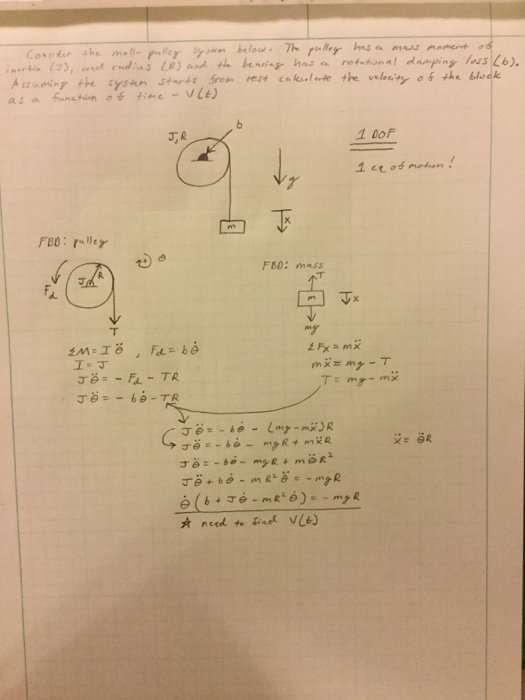 Consider the mass-pulley system below. The pulley has a mass moment of
inertia (J), and radius (R) and the bearing has a rotational damping loss (b).
Assuming the system starts from rest calculate the velocity of the block
as a function of time – V(t)
b
J,R
1 DOF
1 eq of motion!
g
x
m
FBD: pulley
θ
J
R
Fd
T
FBD: mass
T
m
x
mg
ΣM = I θ̈ , Fd = b θ̇
I = J
Jθ̈ = - Fd - TR
Jθ̈ = - bθ̇ - TR
ΣFx = mẍ
mẍ = mg - T
T = mg - mẍ
Jθ̈ = - bθ̇ - (mg - mẍ)R
Jθ̈ = - bθ̇ - mgR + mẍR
ẍ = θ̈R
Jθ̈ = - bθ̇ - mgR + mθ̈R²
Jθ̈ + bθ̇ - mR²θ̈ = - mgR
θ̇ (b + Jθ̇ - mR²θ̇) = - mgR
☆ need to find V(t)